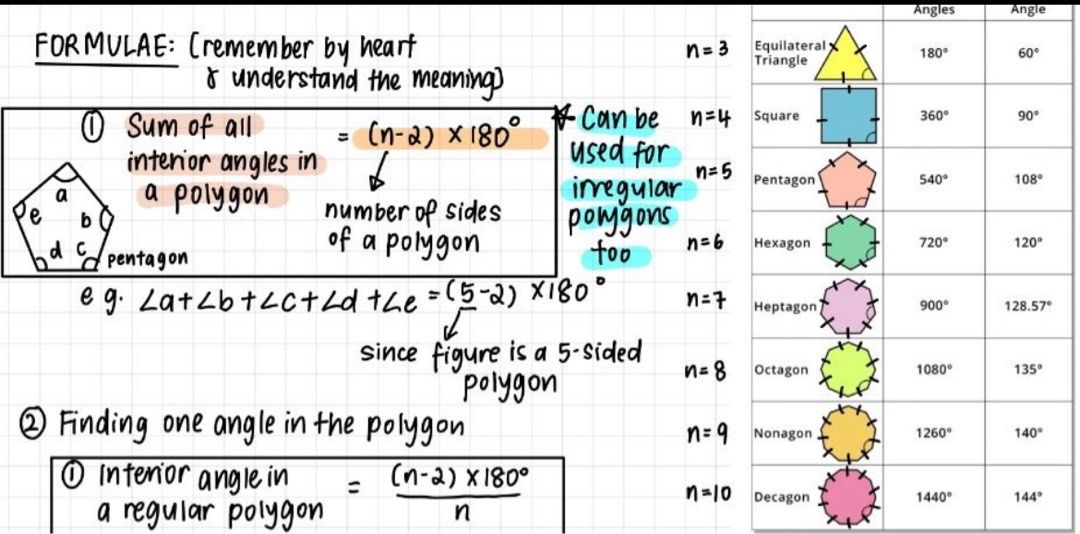 FORMULAE: (remember by heart
& understand the meaning)
① Sum of all
interior angles in
a polygon
= (n-2) × 180°
number of sides
of a polygon
a
b
c
d
e
pentagon
* Can be
used for
irregular
polygons
too
eg. ∠a+∠b+∠c+∠d+∠e = (5-2) ×180°
since figure is a 5-sided
polygon
② Finding one angle in the polygon
① Interior angle in
a regular polygon
= (n-2) ×180°
n
Angles Angle
n=3 Equilateral Triangle 180° 60°
n=4 Square 360° 90°
n=5 Pentagon 540° 108°
n=6 Hexagon 720° 120°
n=7 Heptagon 900° 128.57°
n=8 Octagon 1080° 135°
n=9 Nonagon 1260° 140°
n=10 Decagon 1440° 144°